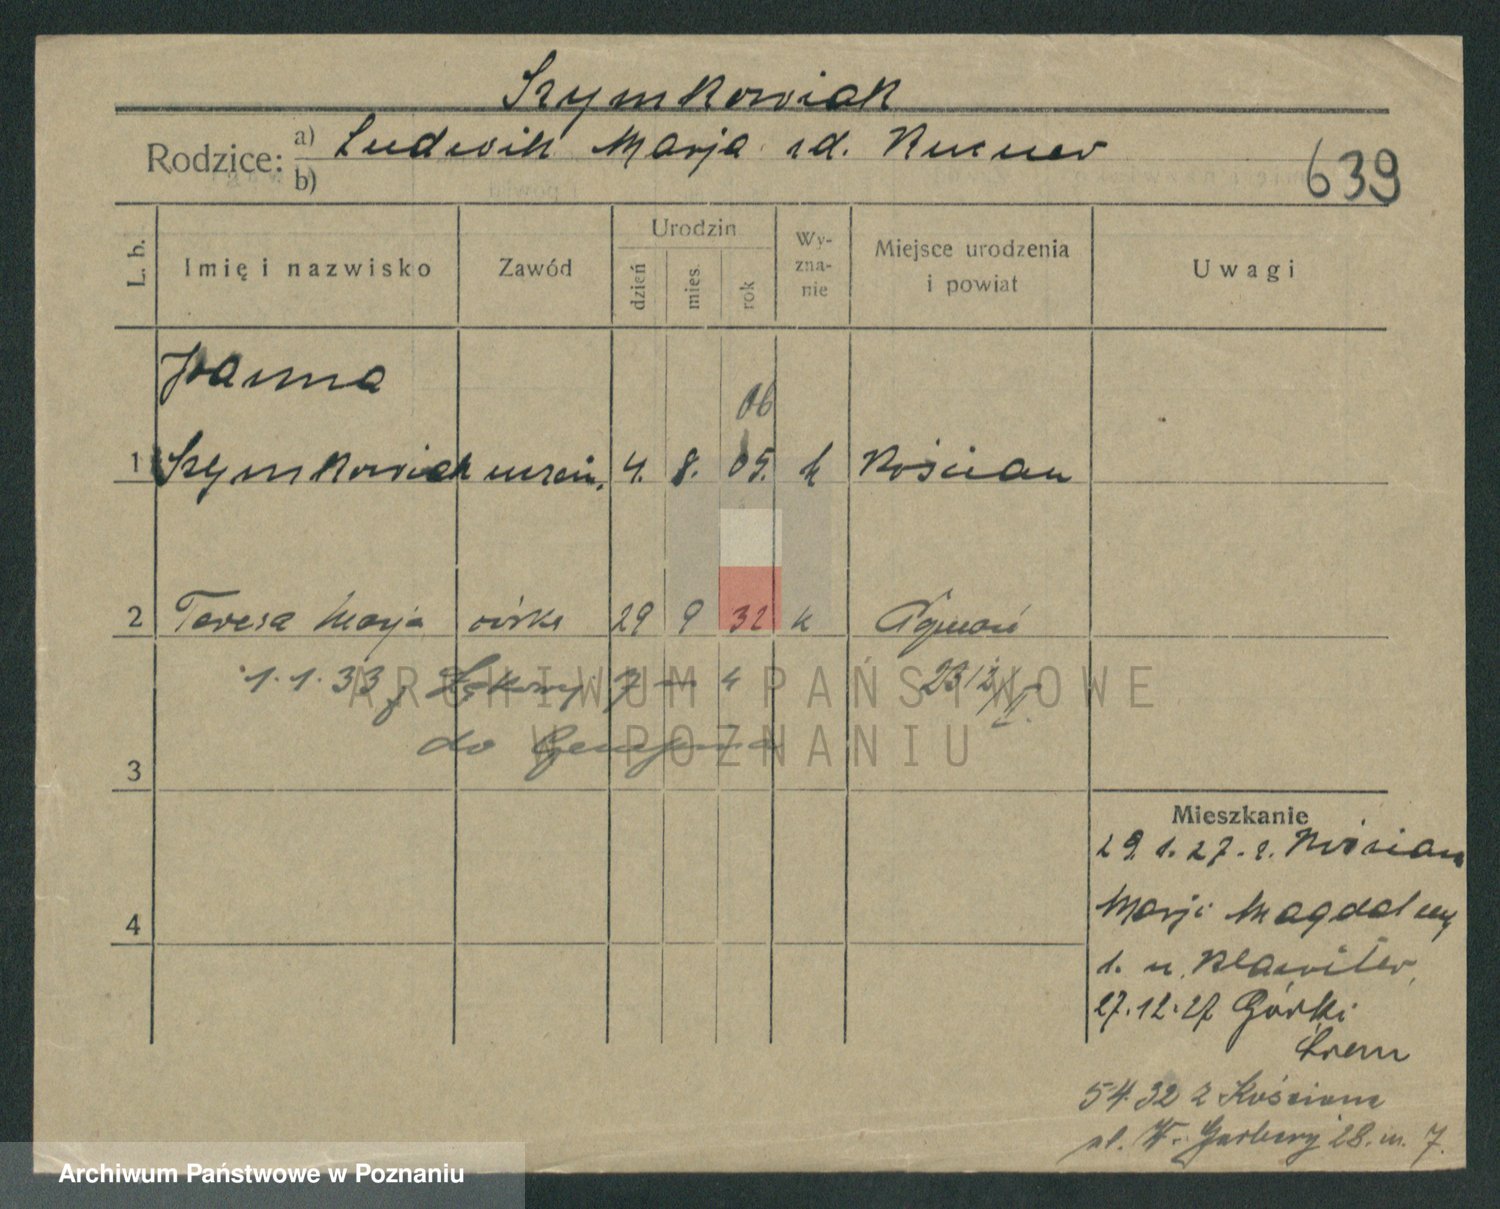 Szymkowiak
Rodzice: a) Ludwik Marja zd. Kucner
b)
639
L. b.
Imię i nazwisko
Zawód
Urodzin
dzień
mies.
rok
Wy-
zna-
nie
Miejsce urodzenia
i powiat
Uwagi
Joanna
06
1 Szymkowiak 4. 8. 05. k Kościan
2 Teresa Marja córka 29 9 32 k
1.1.33 7 4
do
3
4
Mieszkanie
29.1.27. z. Kościan
Marji Magdaleny
1. u.
27.12.27 Górki
Śrem
5 4 32 z Kościana
ul. W. Garbary 28. m. 7.
ARCHIWUM PAŃSTWOWE
W POZNANIU
Archiwum Państwowe w Poznaniu